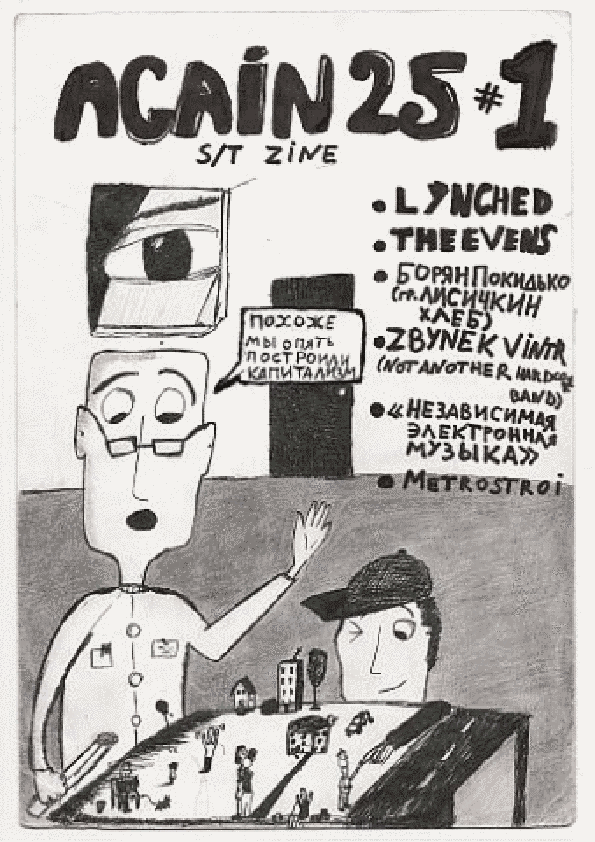 AGAIN 25 #1
S/T ZINE
• LYNCHED
• THE EVENS
• БОРЯН ПОКИДЬКО
(гр. ЛИСИЧКИН
ХЛЕБ)
• ZBYNEK VINTR
(NOT ANOTHER HARDCORE
BAND)
• «НЕЗАВИСИМАЯ
ЭЛЕКТРОННАЯ
МУЗЫКА»
• METROSTROI
ПОХОЖЕ
МЫ ОПЯТЬ
ПОСТРОИЛИ
КАПИТАЛИЗМ